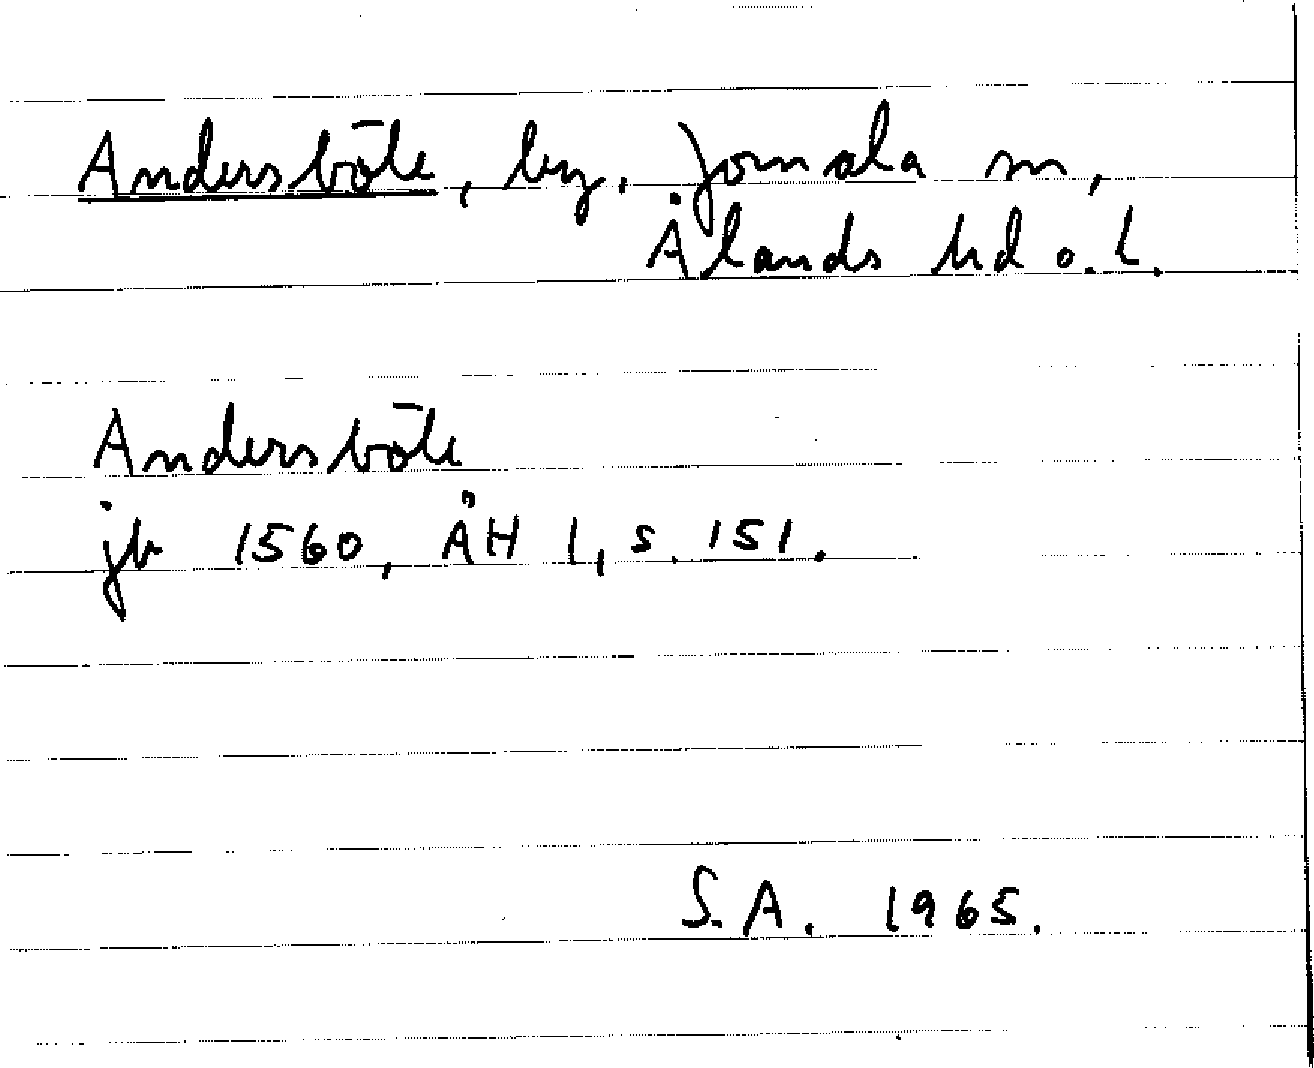 Andersböle, by, Jomala sn,
Ålands hd o. l.
Andersböle
jb 1560, ÅH I, s. 151.
S.A. 1965.